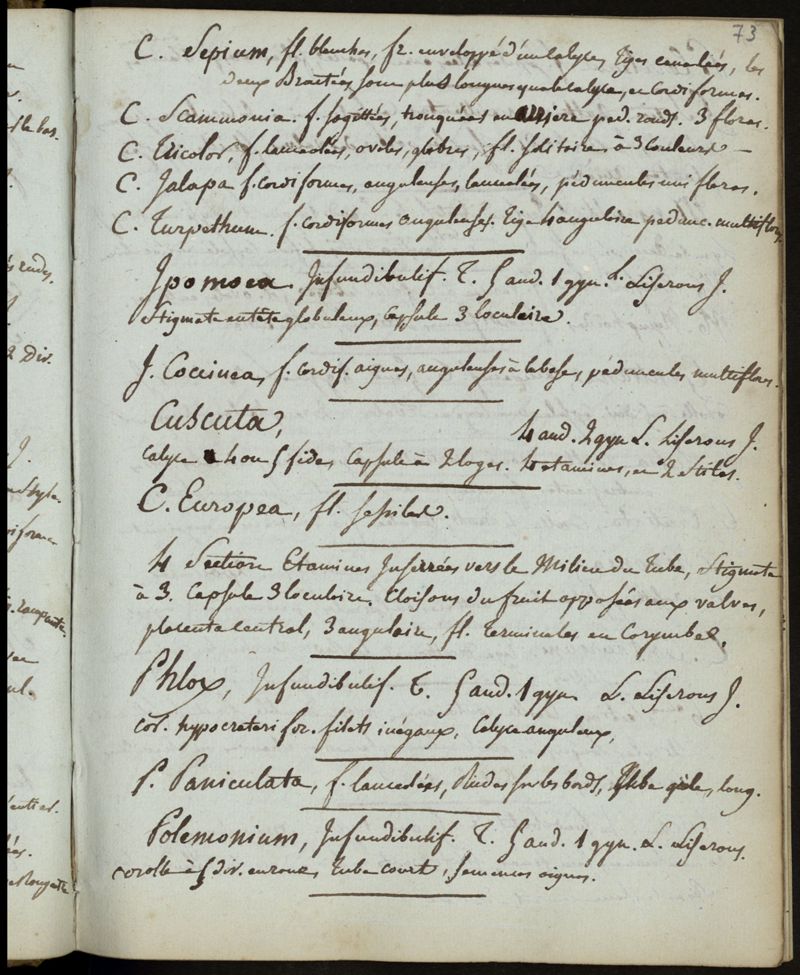 73
C. Sepium, fl. blanches, fr. enveloppé d'un calyce, Tiges canelées, les
deux Bractées sont plus longues que le calyce, en Cordiformes.
C. Scammonia. f. sagittées, tronquées en arriere ped. ronds. 3 flores.
C. Tricolor, f. lanceolées, ovales, glabres, fl. solitaires à 3 couleurs —
C. Jalapa f. cordiformes, anguleuses, lanceolés, péduncules uniflores.
C. Turpethum. f. cordiformes anguleuses. Tige 4 angulaire pedunc. multiflores
Jpomoea. Jnfundibulif. T. 5 and. 1 gyn. L. Liserons J.
Stigmate en tête globuleux, Capsule 3 loculaire.
J. Coccinea, f. cordif. aigues, anguleuses à la base, péduncules multiflores.
Cuscuta,
4 and. 2 gyn L. Liserons J.
Calyce 4 ou 5 fides Capsule à 2 loges. 4 etamines, en 2 Stiles.
C. Europea, fl. sessiles.
4 Section Etamines Inserrées vers le Milieu du Tube, Stigmate
à 3. Capsule 3 loculaire. Cloisons du fruit opposées aux valves,
placenta central, 3 angulaire, fl. Terminales en Corymbes.
Phlox, Jnfundibulif. T. 5 and. 1 gyn L. Liserons J.
Col. hypocraterifor. filets inégaux, Calyce anguleux,
P. Paniculata, f. lanceolées, Rudes sur les bords, Tube long.
Polemonium, Jnfundibulif. T. 5 and. 1 gyn. L. Liserons.
corolle à 5 div. en roue, Tube court, semences aigues.